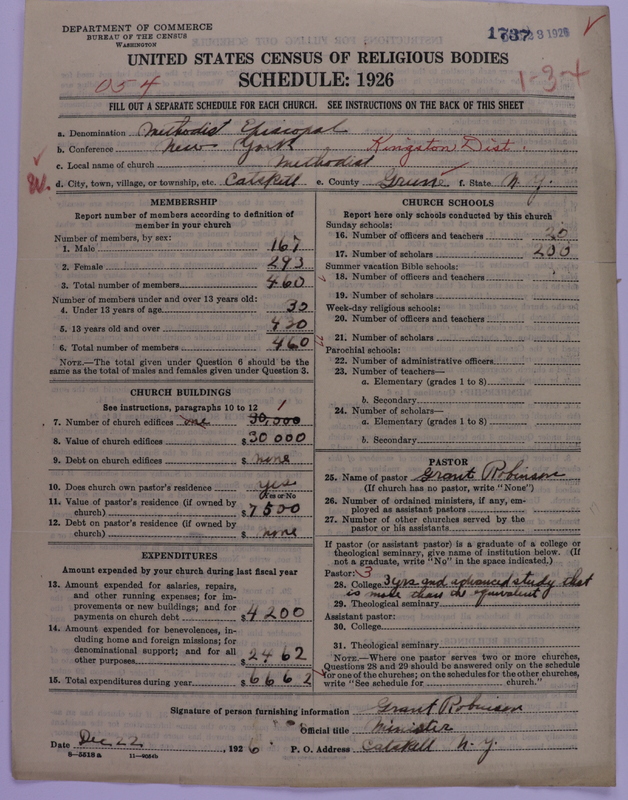 DEPARTMENT OF COMMERCE
BUREAU OF THE CENSUS
WASHINGTON
1737
3 1926
UNITED STATES CENSUS OF RELIGIOUS BODIES
SCHEDULE: 1926
054
1-3-4
FILL OUT A SEPARATE SCHEDULE FOR EACH CHURCH. SEE INSTRUCTIONS ON THE BACK OF THIS SHEET
a. Denomination Methodist Episcopal
b. Conference New York Kingston Dist.
c. Local name of church Methodist
d. City, town, village, or township, etc. Catskill e. County Green f. State N. Y.
MEMBERSHIP
Report number of members according to definition of
member in your church
Number of members, by sex:
1. Male 167
2. Female 293
3. Total number of members 460
Number of members under and over 13 years old:
4. Under 13 years of age 30
5. 13 years old and over 430
6. Total number of members 460
NOTE.—The total given under Question 6 should be the
same as the total of males and females given under Question 3.
CHURCH BUILDINGS
See instructions, paragraphs 10 to 12
1
7. Number of church edifices one 30,000
8. Value of church edifices $30000
9. Debt on church edifices $ none
10. Does church own pastor's residence yes
Yes or No
11. Value of pastor's residence (if owned by
church) $7500
12. Debt on pastor's residence (if owned by
church) $ none
EXPENDITURES
Amount expended by your church during last fiscal year
13. Amount expended for salaries, repairs,
and other running expenses; for im-
provements or new buildings; and for
payments on church debt $4200
14. Amount expended for benevolences, in-
cluding home and foreign missions; for
denominational support; and for all
other purposes $2462
15. Total expenditures during year $6662
CHURCH SCHOOLS
Report here only schools conducted by this church
Sunday schools:
16. Number of officers and teachers 20
17. Number of scholars 200
Summer vacation Bible schools:
18. Number of officers and teachers
19. Number of scholars
Week-day religious schools:
20. Number of officers and teachers
21. Number of scholars
Parochial schools:
22. Number of administrative officers
23. Number of teachers—
a. Elementary (grades 1 to 8)
b. Secondary
24. Number of scholars—
a. Elementary (grades 1 to 8)
b. Secondary
PASTOR
25. Name of pastor Grant Robinson
(If church has no pastor, write "None")
26. Number of ordained ministers, if any, em-
ployed as assistant pastors
27. Number of other churches served by the
pastor or his assistants
If pastor (or assistant pastor) is a graduate of a college or
theological seminary, give name of institution below. (If
not a graduate, write "No" in the space indicated.)
Pastor: 3
28. College 3 yrs and advanced study that
is more than the equivalent
29. Theological seminary
Assistant pastor:
30. College
31. Theological seminary
NOTE.—Where one pastor serves two or more churches,
Questions 28 and 29 should be answered only on the schedule
for one of the churches; on the schedules for the other churches,
write "See schedule for church."
Signature of person furnishing information Grant Robinson
Official title Minister
Date Dec 22, 1926 P. O. Address Catskill N. Y.
8—5518a 11—9054b